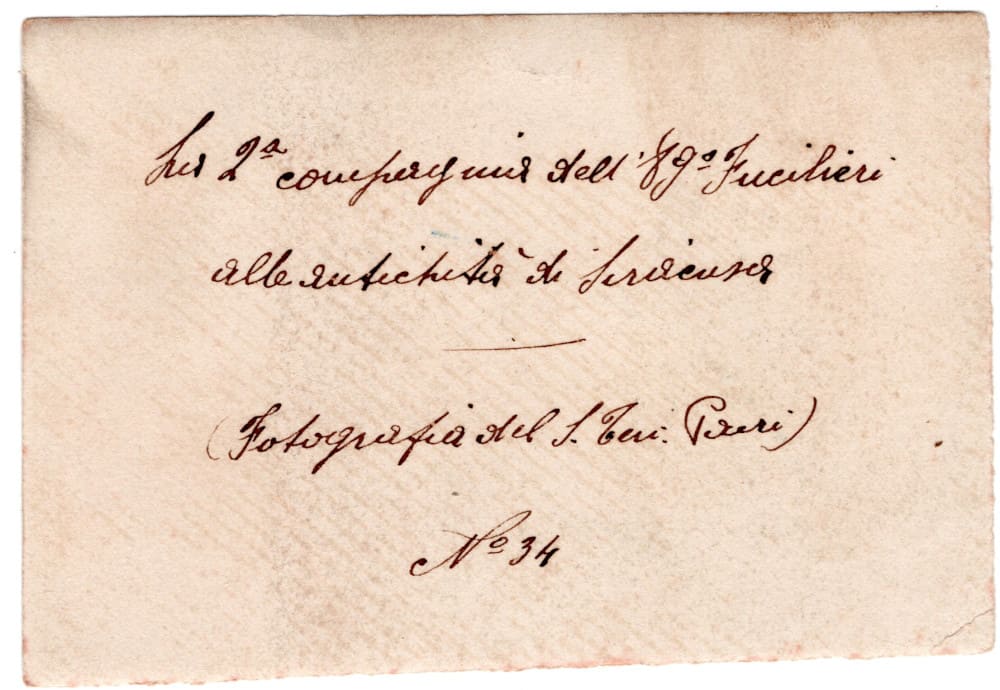 La 2ª compagnia dell' 89º Fucilieri
alle antichità di Siracusa
(Fotografia del S. Ten. Pauri)
Nº 34